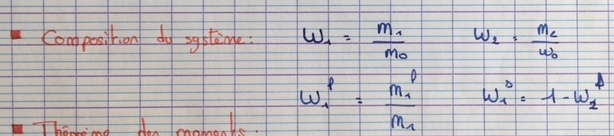 ▪ Composition du système : ω₁ = m₁/m₀ ω₂ = m₂/ω₀
ω₁ᵝ = m₁ᵝ/m₁ ω₁ᐞ = 1 - ω₂ᐞ
▪ Théorème des moments :